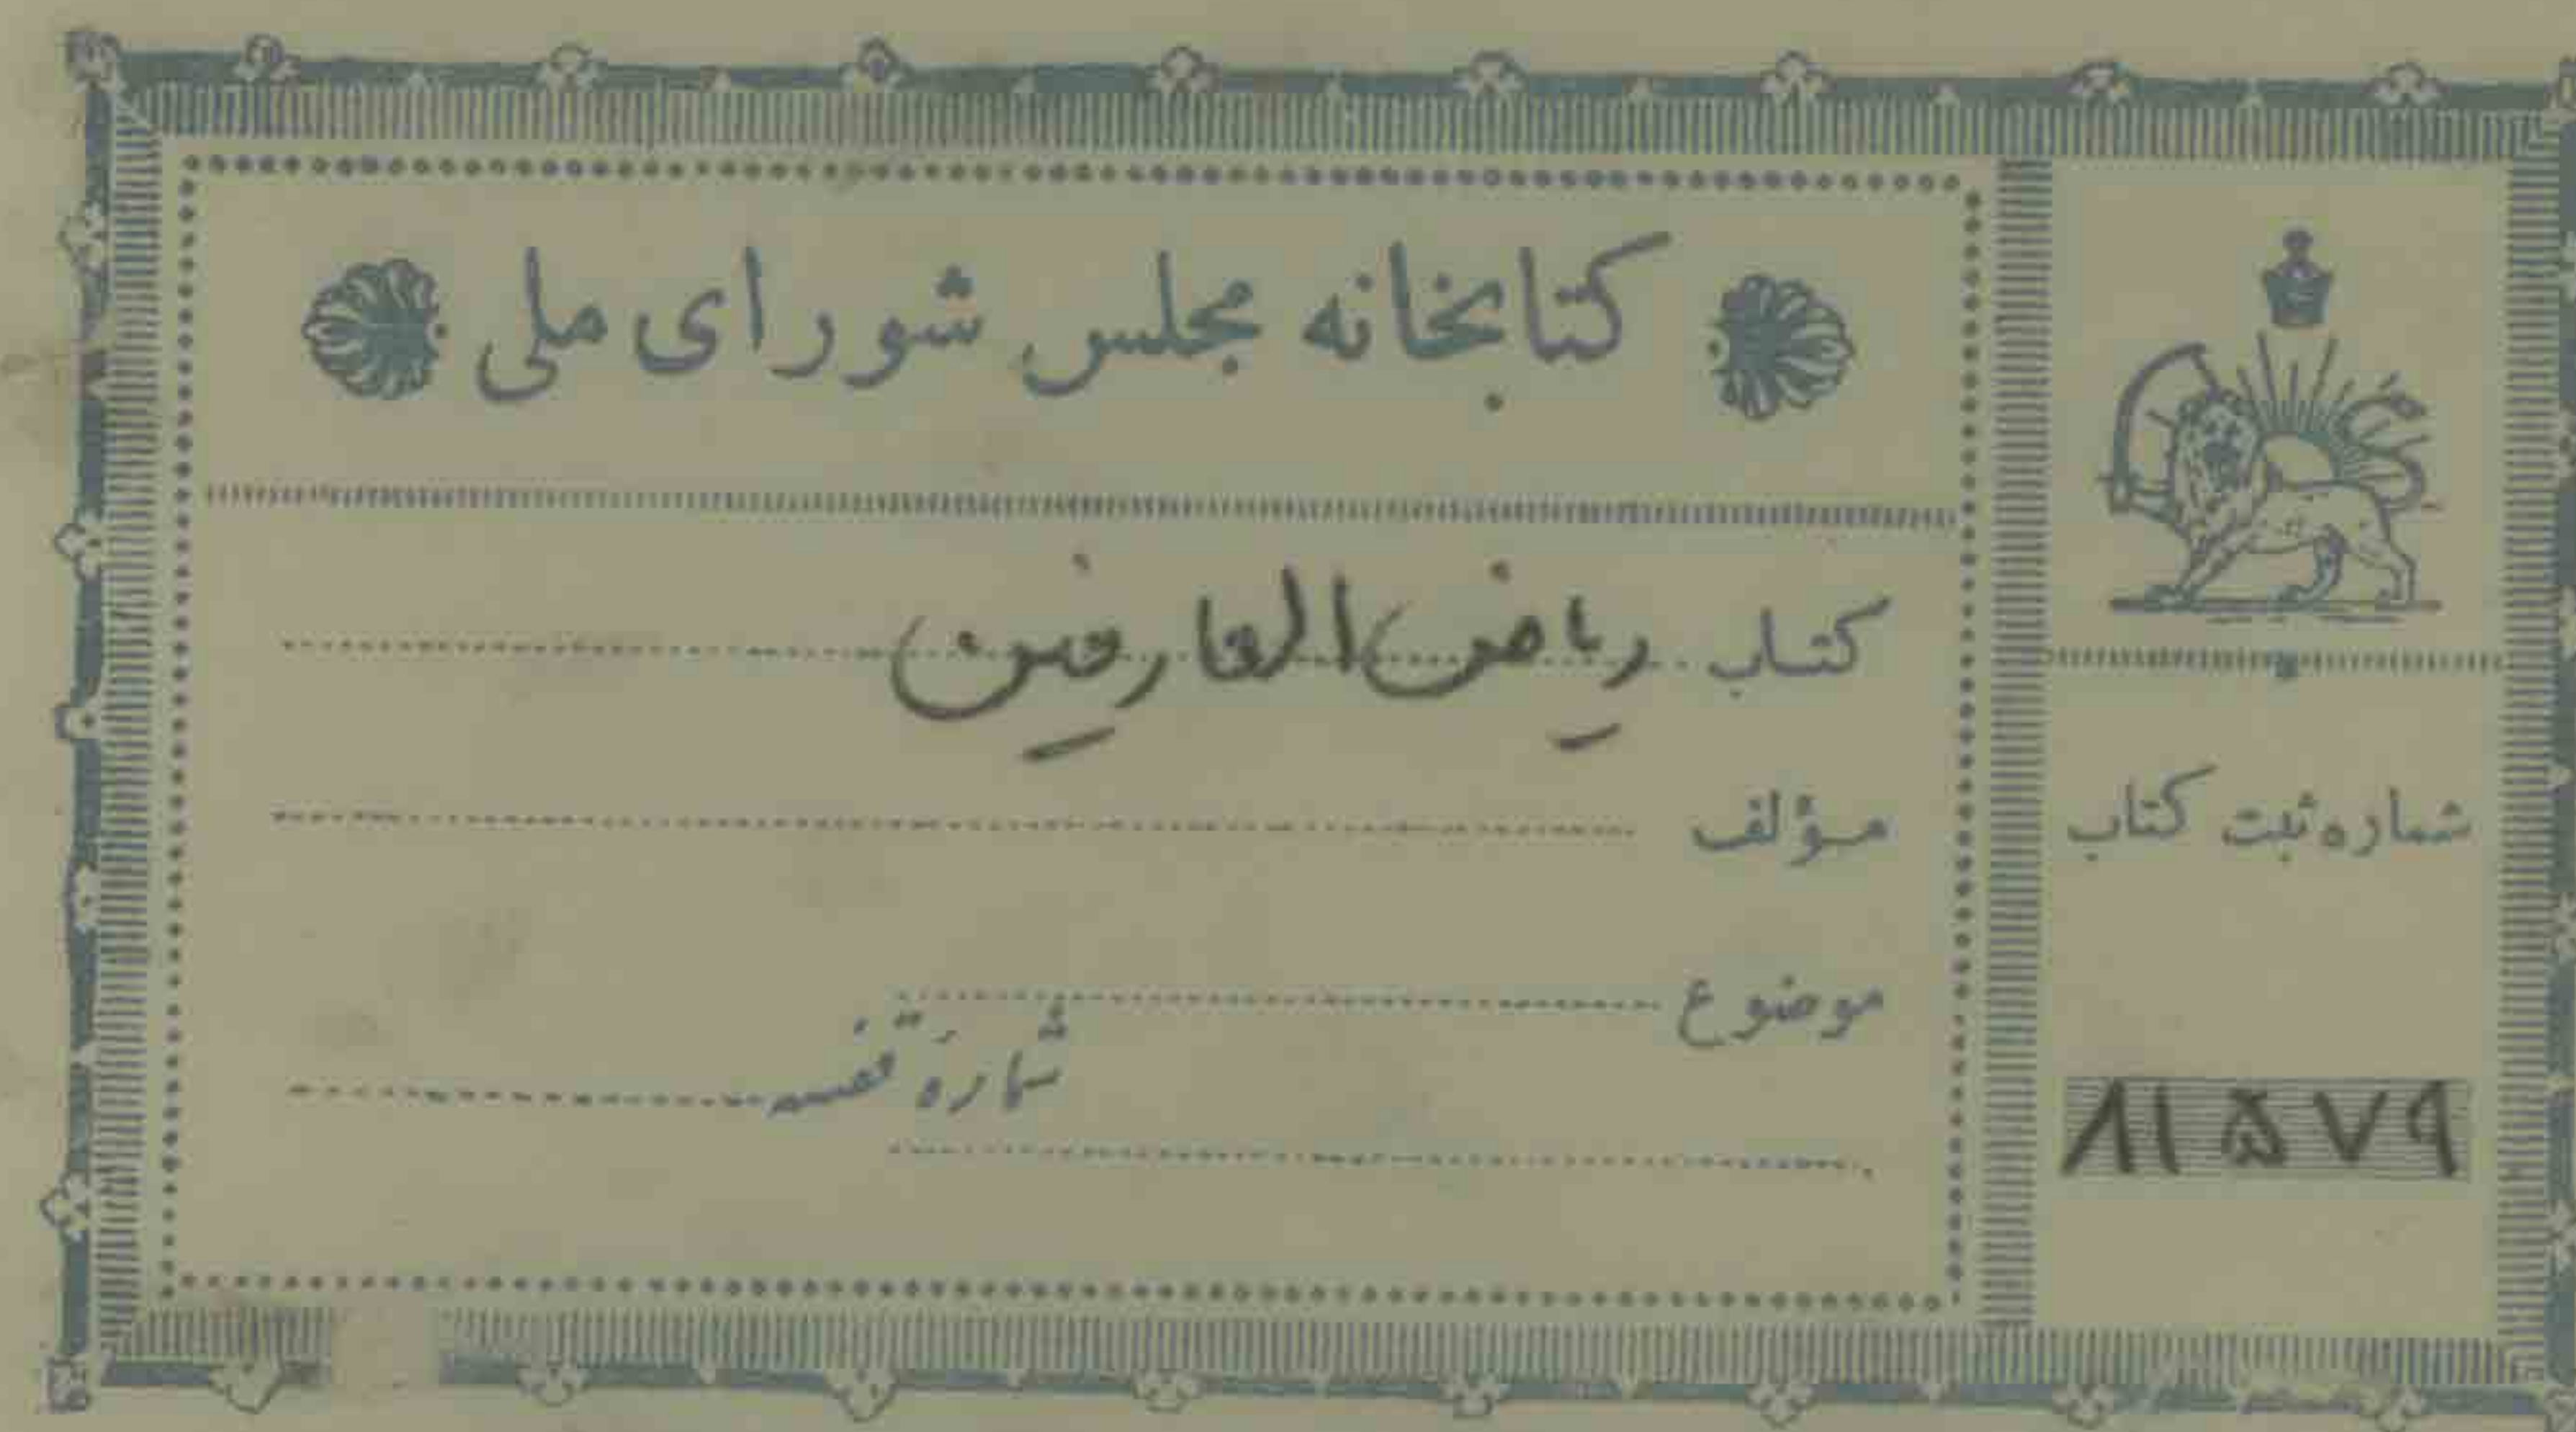 کتابخانه مجلس شورای ملی
کتاب ریاض العارفین
مؤلف
موضوع
شماره قفسه
شماره ثبت کتاب
۸۱۵۷۹